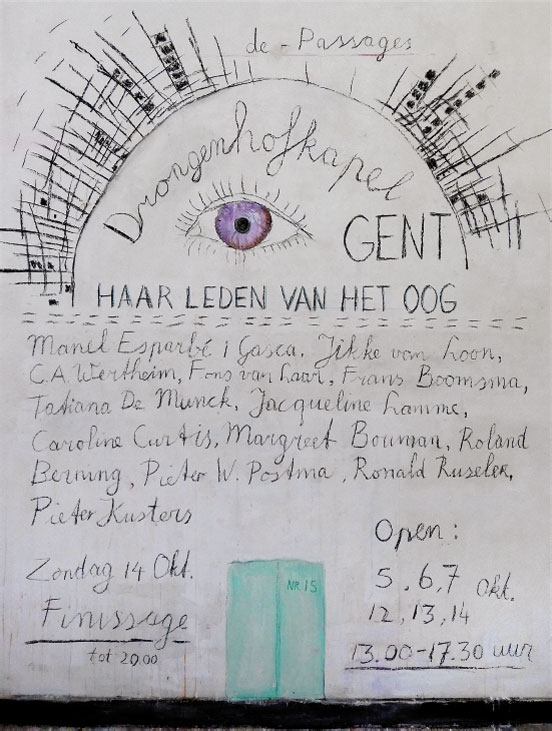 de-Passages
Drongenhofkapel
GENT
HAAR LEDEN VAN HET OOG
Manel Esparbé i Gasca, Jikke van Loon,
C.A. Wertheim, Fons van Laar, Frans Boomsma,
Tatiana De Munck, Jacqueline Lamme,
Caroline Curtis, Margreet Bouman, Roland
Berning, Pieter W. Postma, Ronald Ruseler,
Pieter Kusters
Open:
Zondag 14 Okt.
5, 6, 7 Okt.
NR. 15
Finissage
12, 13, 14
tot 20.00
13.00-17.30 uur